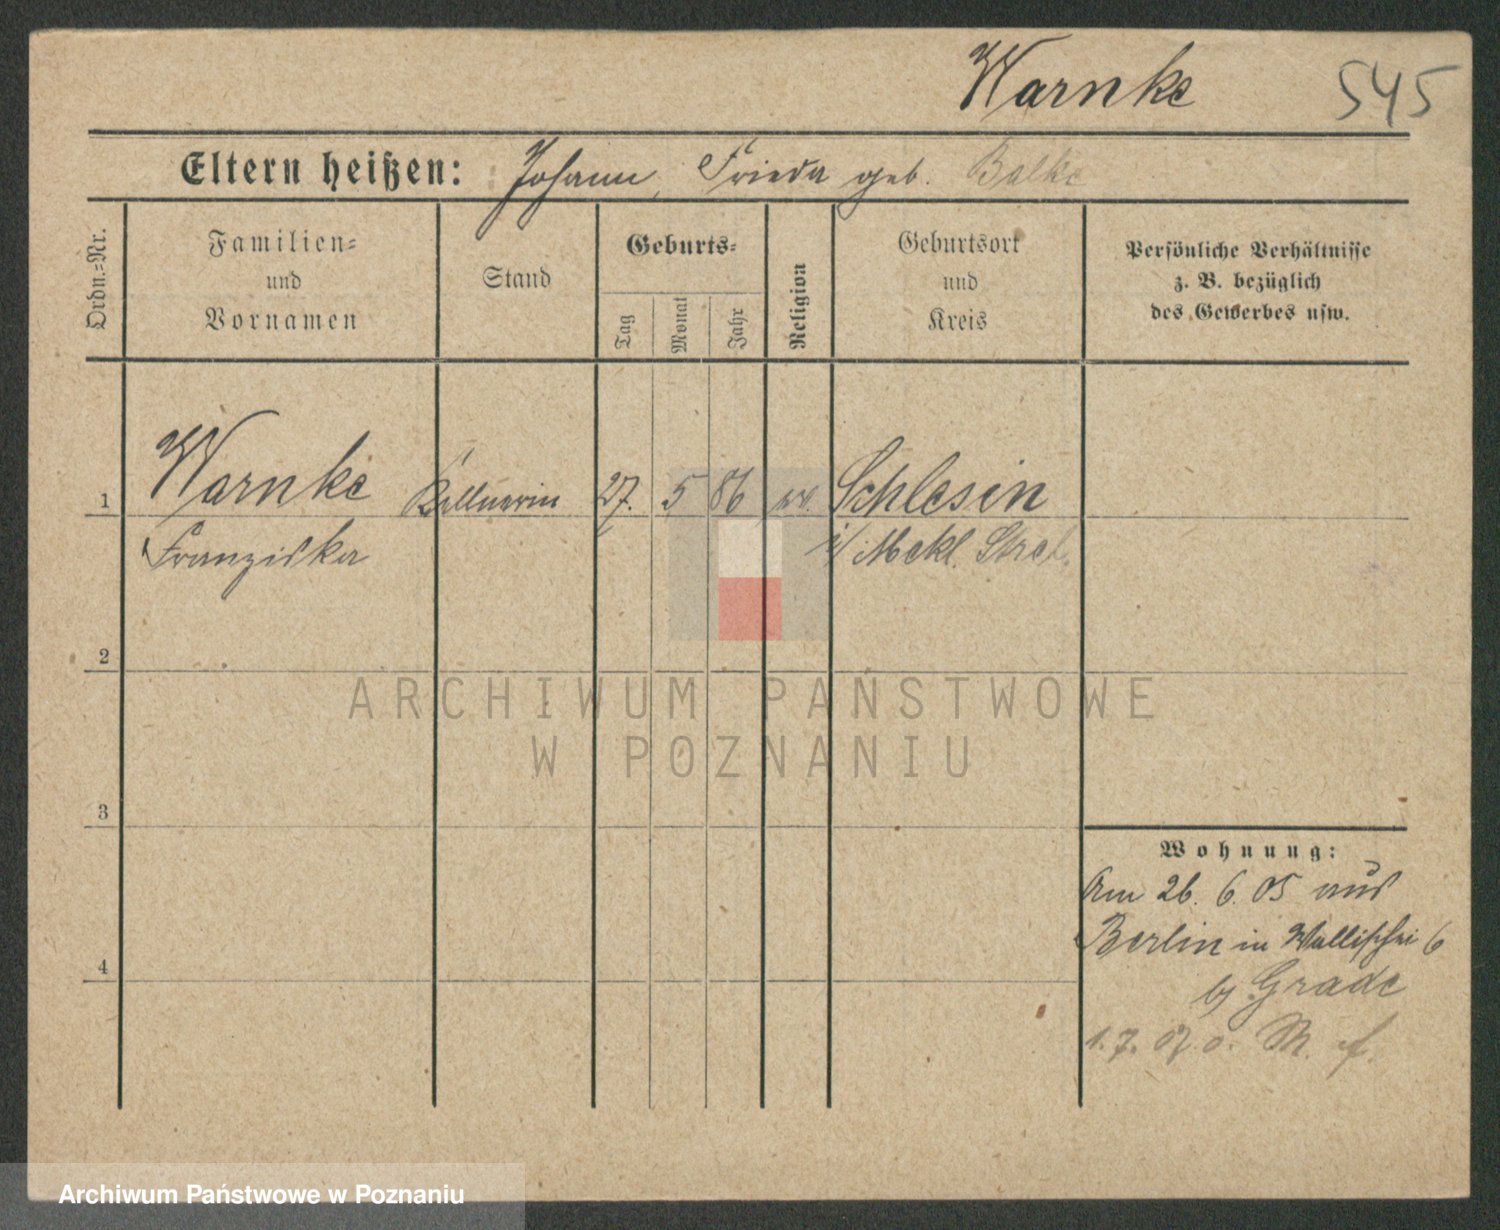 Warnke 545
Eltern heißen: Johann, Frieda geb. Balke
Ordn.=Nr.
Familien=
und
Vornamen
Stand
Geburts=
Tag
Monat
Jahr
Religion
Geburtsort
und
Kreis
Persönliche Verhältnisse
z. B. bezüglich
des Gewerbes usw.
1 Warnke Kellnerin 27. 5 86 ev. Schlesin
Franziska i/ Mekl. Strel.
2
3
4
Wohnung:
Am 26. 6. 05 aus
Berlin in Wallischei 6
b/ Grade
1. 7. 07 o.
ARCHIWUM PAŃSTWOWE
W POZNANIU
Archiwum Państwowe w Poznaniu